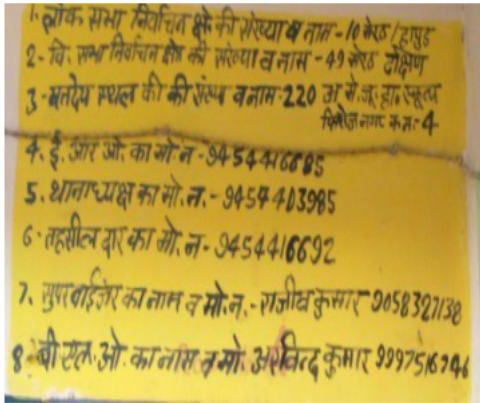 1. लोक सभा निर्वाचन क्षेत्र की संख्या व नाम - 10 मेरठ / हापुड़
2 - वि. सभा निर्वाचन क्षेत्र की संख्या व नाम - 49 मेरठ दक्षिण
3 - मतदेय स्थल की की संख्या व नाम - 220 अ से. जू. हा. स्कूल
नगर क.न. - 4
4. ई. आर ओ. का मो. न - 9454416685
5. थानाध्यक्ष का मो. न. - 9454403985
6 - तहसील दार का मो. न - 9454416692
7. सुपरवाईजर का नाम व मो. न. - राजीव कुमार 9058327138
8 बी एल. ओ. का नाम व मो. अरविन्द कुमार 9997516746